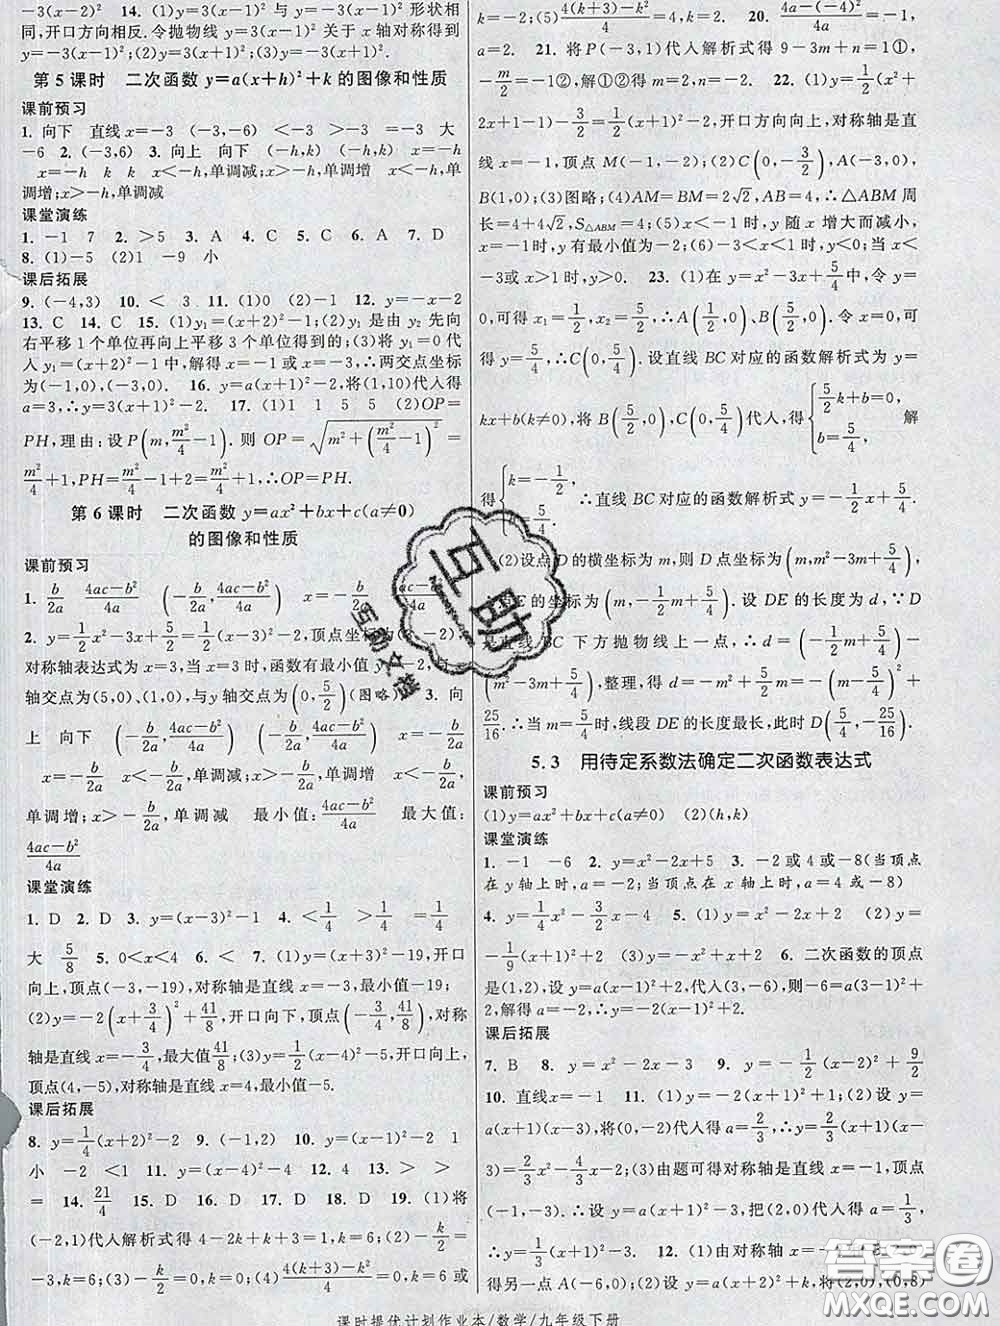 (x-1)²-3. 14. y=-3(x-1)²与 y=-3(x-1)²形状相
同,开口方向相反.令抛物线 y=3(x-1)² 关于 x 轴对称得到
y=-3(x-1)²;(2)y=3(x+1)²;(3)y=3(x+1)².
第 5 课时 二次函数 y=a(x+h)²+k 的图像和性质
课前预习
1. 向下 直线 x=-3 (-3,-6) <-3 >-3 =-3 大
-6 2. (-3,6) 3. 向上 向下 (-h,k) (-h,k) x=-h
x=-h k k x<-h,单调减;x>-h,单调增 x<-h,单
调增;x>-h,单调减
课堂演练
1. -1 7 2. >5 3. A 4. C 5. C 6. A 7. D
8. (1)-5 (2)1 -9 小
课后拓展
9. (-4,3) 10. < 3 11. (1)0 (2)-1 12. y=-x-2
13. C 14. C 15. (1)y₁=(x+2)²-1;(2)y₁ 是由 y₂ 先向
右平移 1 个单位再向上平移 3 个单位得到的;(3)将 y₁=0代
人 y₁=(x+2)²-1 中,解得 x=-1 或 x=-3,∴两交点坐标
为(-1,0),(-3,0). 16. y=a(x+1)²-2,将(1,10)代入得
a=3,∴y=3(x+1)²-2. 17. (1)1 1 5 5 (2)OP=
PH,理由:设P(m,m²/4-1). 则 OP=√(m²+(m²/4-1)²)=
m²/4+1,PH=m²/4-1+2=m²/4+1,∴OP=PH.
第 6 课时 二次函数 y=ax²+bx+c(a≠0)
的图像和性质
课前预习
1. -b/2a (4ac-b²)/4a (-b/2a,(4ac-b²)/4a) x=-b/2a
2. y=1/2x²-3x+5/2=1/2(x-3)²-2,顶点坐标为(3,-2)
对称轴表达式为 x=3,当 x=3 时,函数有最小值 y=-2,
轴交点为(5,0)、(1,0),与 y 轴交点为(0,5/2)(图略) 3. 向
上 向下 (-b/2a,(4ac-b²)/4a) (-b/2a,(4ac-b²)/4a) x=-b/2a
x=-b/2a x<-b/2a,单调减;x>-b/2a,单调增 x<-b/2a,
单调增;x>-b/2a,单调减 最小值:(4ac-b²)/4a 最大值:
(4ac-b²)/4a
课堂演练
1. D 2. D 3. y=(x-3)²-1 4. <1/4 >1/4 =1/4
大 5/8 5. 0<x<4 6. < 7. (1)y=(x+3)²-19,开口
向上,顶点(-3,-19),对称轴是直线 x=-3,最小值-19;
(2)y=-2(x+3/4)²+41/8,开口向下,顶点(-3/4,41/8),对称
轴是直线 x=-3/4,最大值 41/8;(3)y=1/2(x-4)²-5,开口向上,
顶点(4,-5),对称轴是直线 x=4,最小值-5.
课后拓展
8. y=1/4(x+2)²-2 9. (-1,2) 10. y=(x-1)²-2 1
小 -2 <1 11. y=(x-4)²-2 12. 4 13. > >
= 14. 21/4 15. D 16. D 17. D 18. D 19. (1)将
(-2,1)代人解析式得 4-2k+k+3=1,k=6;(2)-k/2=
-3,k=6;(3)-k/2=0,k=0;(4)(4(k+3)-k²)/4=0,k=6 或
k=-2;(5)(4(k+3)-k²)/4=-1, 20. (4a-(-4)²)/4=-1,
a=2. 21. 将 P(-3,1)代入解析式得 9-3m+n=1①,
-m/2=-1②,解①②得 22. (1)y=1/2(x²+
2x+1-1)-3/2=1/2(x+1)²-2,开口方向向上,对称轴是直
线 x=-1,顶点 M(-1,-2);(2)C(0,-3/2),A(-3,0),
B(1,0);(3)图略;(4)AM=BM=2√2,AB=4,∴△ABM 周
长=4+4√2,S△ABM=4;(5)x<-1 时,y 随 x 增大而减小,
x=-1时,y 有最小值为-2;(6)-3<x<1时,y<0;当 x<
-3或 x>1时,y>0. 23. (1)在 y=x²-3x+5/4中,令 y=
0,可得 x₁=1/2,x₂=5/2,∴A(1/2,0)、B(5/2,0).令 x=0,可
得 y=5/4,∴C(0,5/4).设直线 BC 对应的函数解析式为 y=
kx+b(k≠0),将 B(5/2,0),C(0,5/4)代人,得{5/2k+b=0, b=5/4, 解
得{k=-1/2, b=5/4. ∴直线 BC 对应的函数解析式 y=-1/2x+
5/4;(2)设点 D 的横坐标为 m,则 D 点坐标为(m,m²-3m+5/4),
E 的坐标为(m,-1/2m+5/4).设 DE 的长度为 d,∵D
是直线 BC 下方抛物线上一点,∴d=(-1/2m+5/4)
-(m²-3m+5/4),整理,得 d=-m²+5/2m=-(m-5/4)²+
25/16.∴当 m=5/4时,线段 DE 的长度最长,此时 D(5/4,-15/16).
5.3 用待定系数法确定二次函数表达式
课前预习
(1)y=ax²+bx+c(a≠0) (2)(h,k)
课堂演练
1. -1 -6 2. y=x²-2x+5 3. -2或 4 或-8(当顶点
在 y 轴上时,a=-2;当顶点在 x 轴上时,a=4或-8)
4. y=1/4x²-3/2x-4 5. (1)y=x²-2x+2 (2)y=
-1/9(x+1)²+2 (3)y=x²-1 6. 二次函数的顶点
是(1,2),设 y=a(x-1)²+2,代入(3,-6),则-6=a(3-1)²+
2,解得 a=-2,∴y=-2(x-1)²+2.
课后拓展
7. B 8. y=x²-2x-3 9. y=-1/2(x-2)²+9/2
10. 直线x=-1 11. (1)y=2(x+1)²+1;(2)设 y=
a(x+1)(x-3),将(0,-2)代入得 a=2/3,∴y=2/3(x+1)(x-
3)=2/3x²-4/3x-2;(3)由题可得对称轴是直线 x=-1,顶点
(-1,-3),设 y=a(x+1)²-3,把(2,0)代入得 a=1/3,
∴y=1/3(x+1)²-3. 12. (1)由对称轴 x=-1
得另一点 A(-6,0);(2)设 y=a(x+6)(x-4),将(0,8)
课时提优计划作业本/数学/九年级下册
互助
互助文档
答案圈
MXQE.COM